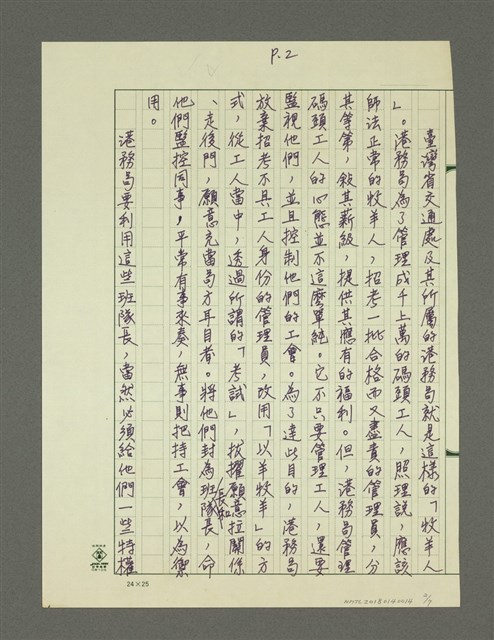 P.2
臺灣省交通處及其所屬的港務局就是這樣的「牧羊人
」。港務局為了管理成千上萬的碼頭工人，照理說，應該
師法正常的牧羊人，招考一批合格而又盡責的管理員，分
其等第，敘其薪級，提供其應有的福利。但，港務局管理
碼頭工人的心態並不這麼單純。它不只要管理工人，還要
監視他們，並且控制他們的工會。為了達此目的，港務局
放棄招考不具工人身份的管理員，改用「以羊牧羊」的方
式，從工人當中，透過所謂的「考試」，拔擢願意拉關係
、走後門，願意充當局方耳目者。將他們封為班長和隊長，命
他們監控同事，平常有事來奏，無事則把持工會，以為禦
用。
港務局要利用這些班隊長，當然必須給他們一些特權
24×25
NMTL20180140014
2/7